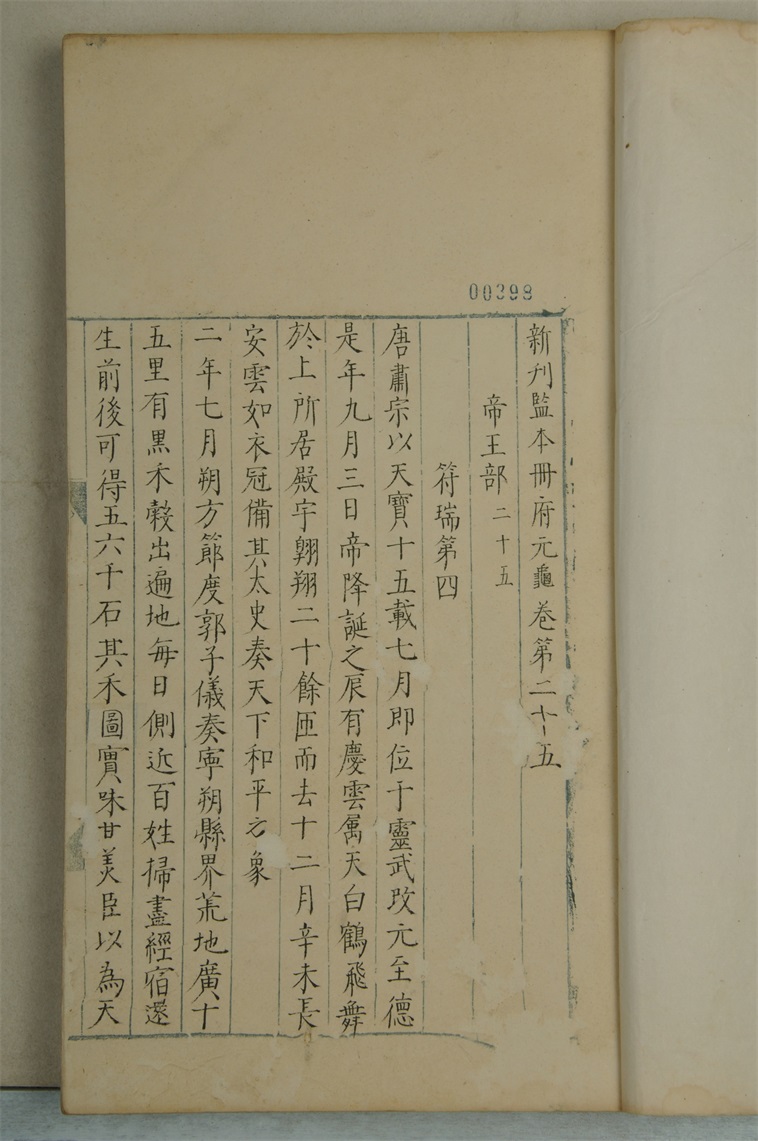 00398
新刊監本冊府元龜卷第二十五
帝王部二十五
符瑞第四
唐肅宗以天寶十五載七月即位于靈武改元至德
是年九月三日帝降誕之辰有慶雲属天白鶴飛舞
於上所居殿宇翺翔二十餘匝而去十二月辛未長
安雲如衣冠備其太史奏天下和平之象
二年七月朔方節度郭子儀奏寧朔縣界荒地廣十
五里有黑禾穀出遍地每日側近百姓掃盡經宿還
生前後可得五六千石其禾圖實味甘美臣以為天